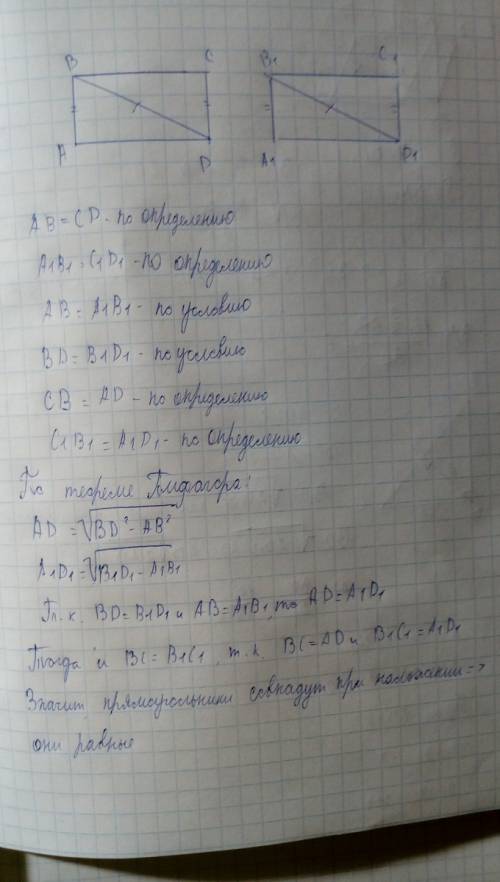 B C B1 C1
A D A1 D1
AB = CD - по определению
A1B1 = C1D1 - по определению
AB = A1B1 - по условию
BD = B1D1 - по условию
CB = AD - по определению
C1B1 = A1D1 - по определению
По теореме Пифагора:
AD = √BD² - AB²
A1D1 = √B1D1 - A1B1
Т.к. BD = B1D1 и AB = A1B1, то AD = A1D1
Тогда и BC = B1C1, т.к. BC = AD и B1C1 = A1D1
Значит, прямоугольники совпадут при наложении =>
они равные